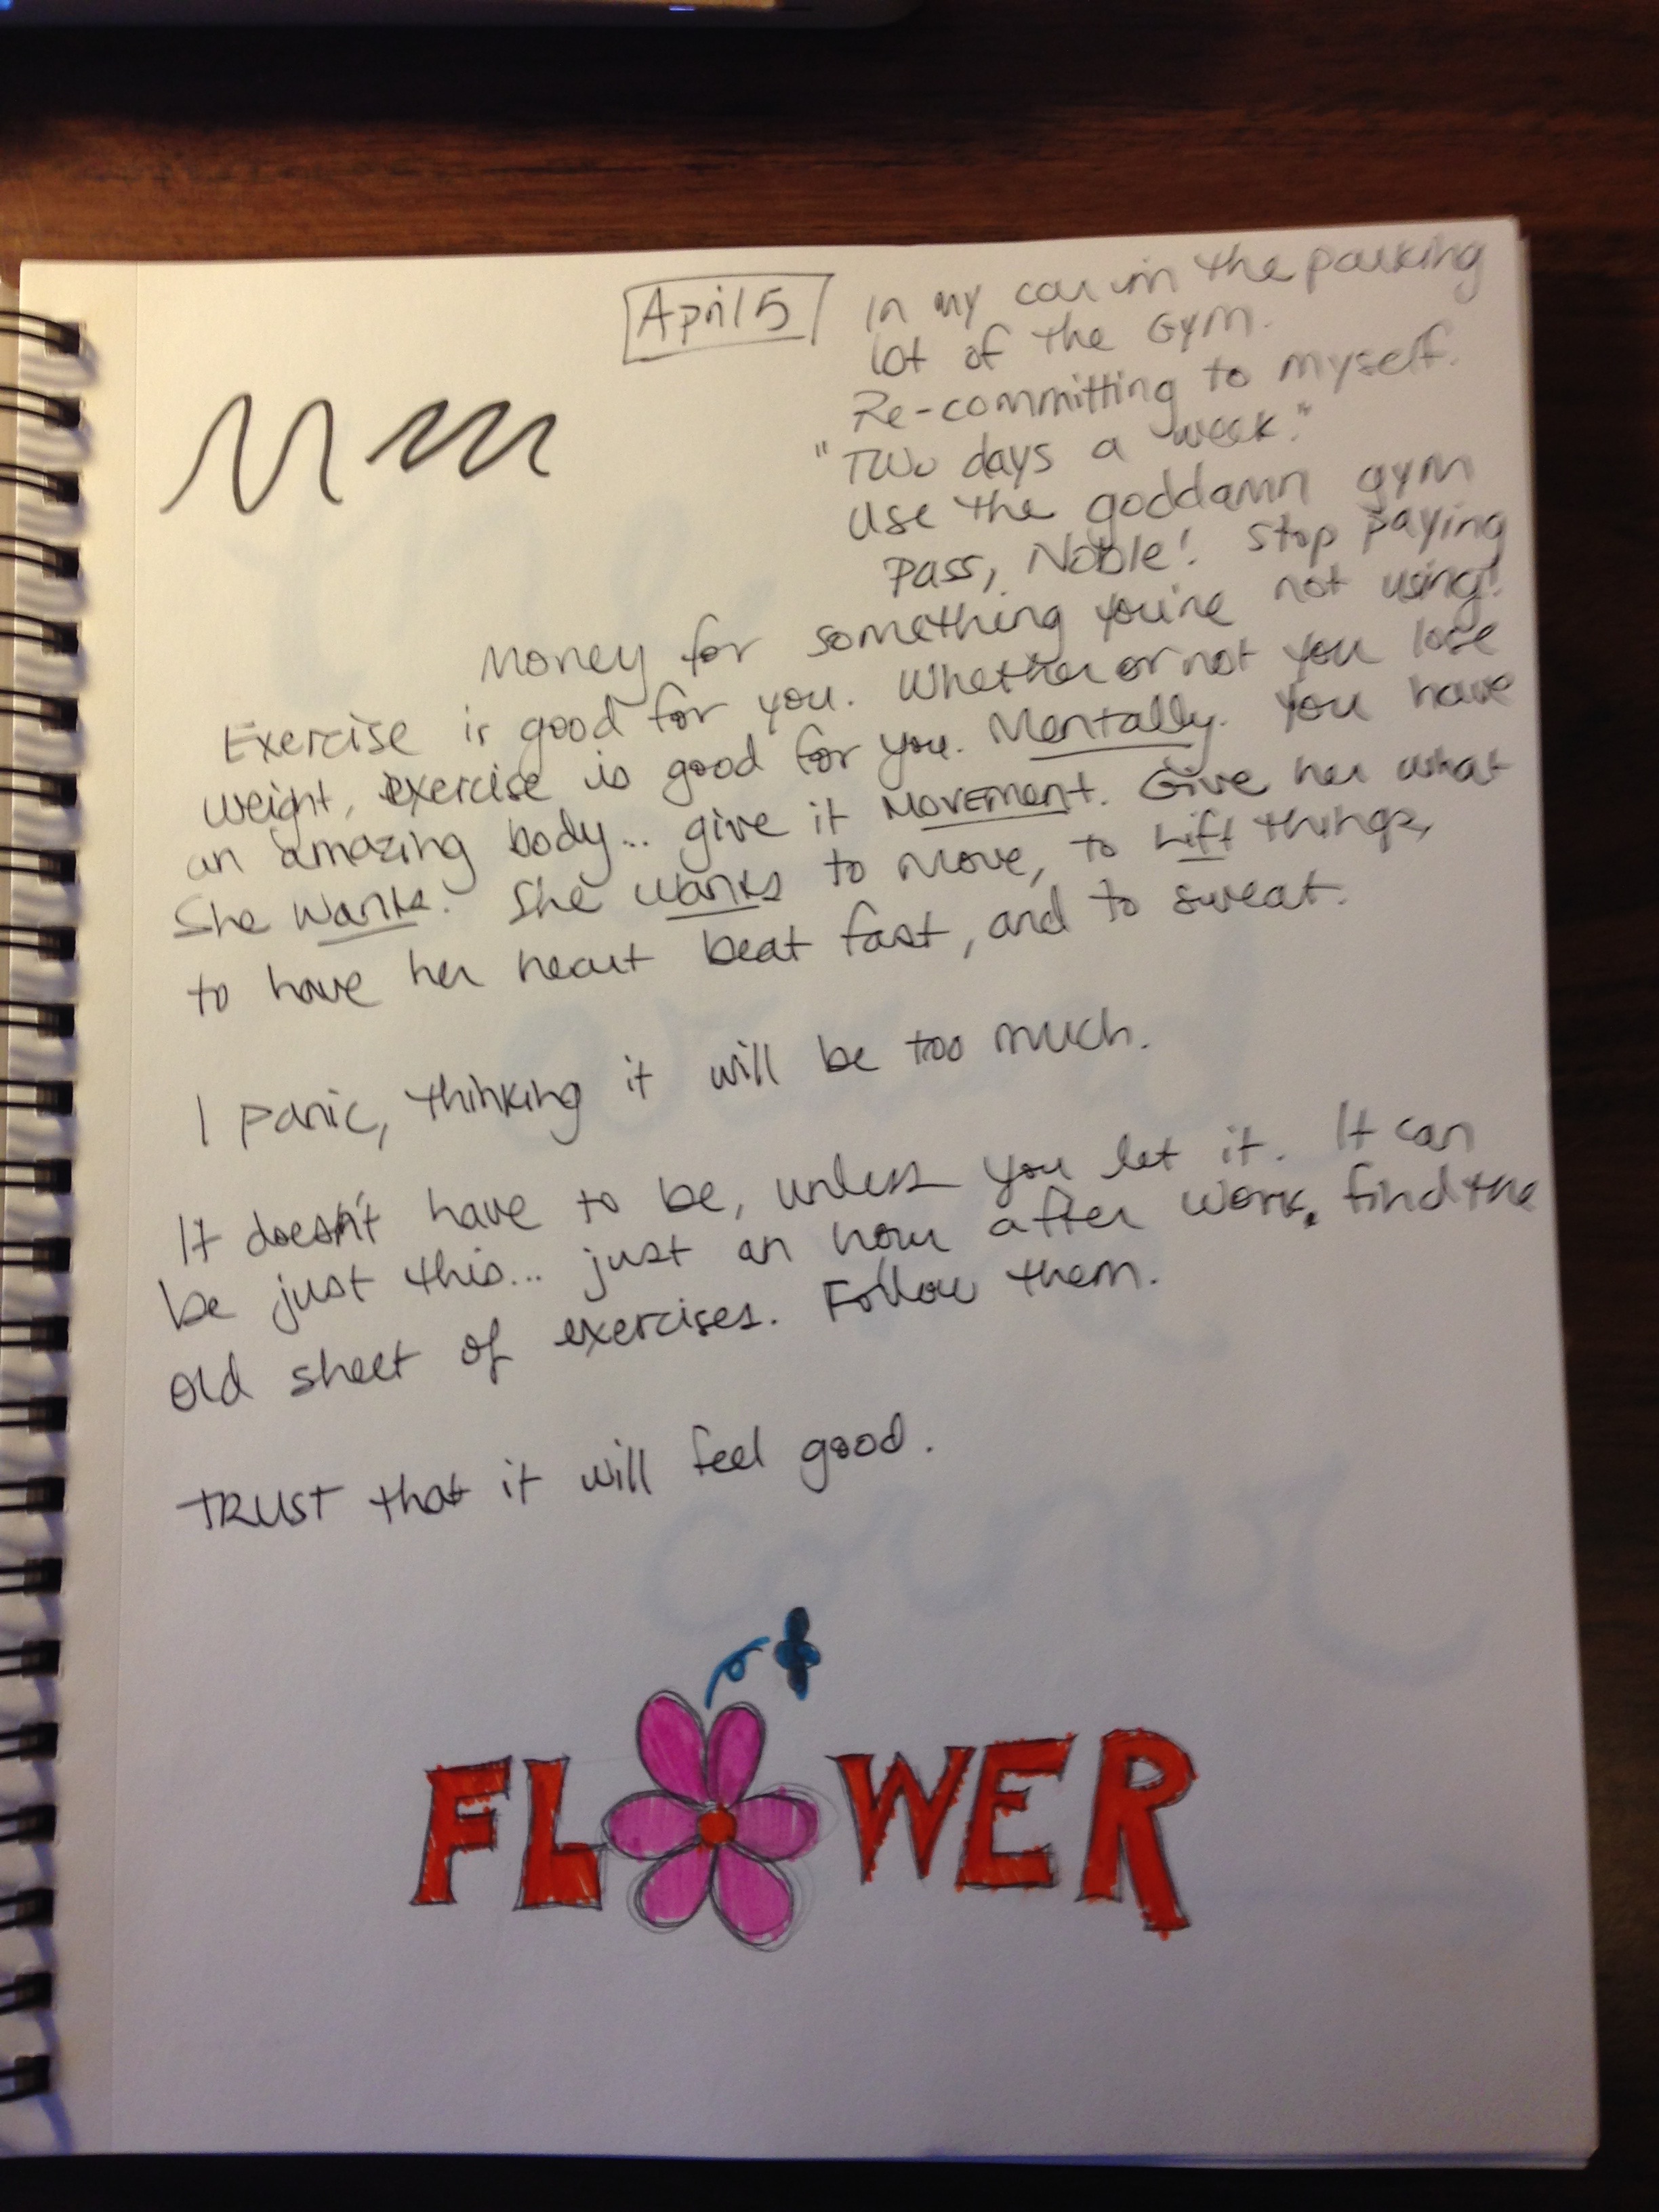 April 5
In my car in the parking
lot of the Gym.
Re-committing to myself.
"Two days a week."
Use the goddamn gym
pass, Noble! Stop paying
money for something you're not using!
Exercise is good for you. Whether or not you lose
weight, exercise is good for you. Mentally. You have
an amazing body... give it MOVEMENT. Give her what
She wants. She wants to move, to Lift things,
to have her heart beat fast, and to sweat.
I panic, thinking it will be too much.
It doesn't have to be, unless you let it. It can
be just this... just an hour after work. Find the
old sheet of exercises. Follow them.
TRUST that it will feel good.
FLOWER